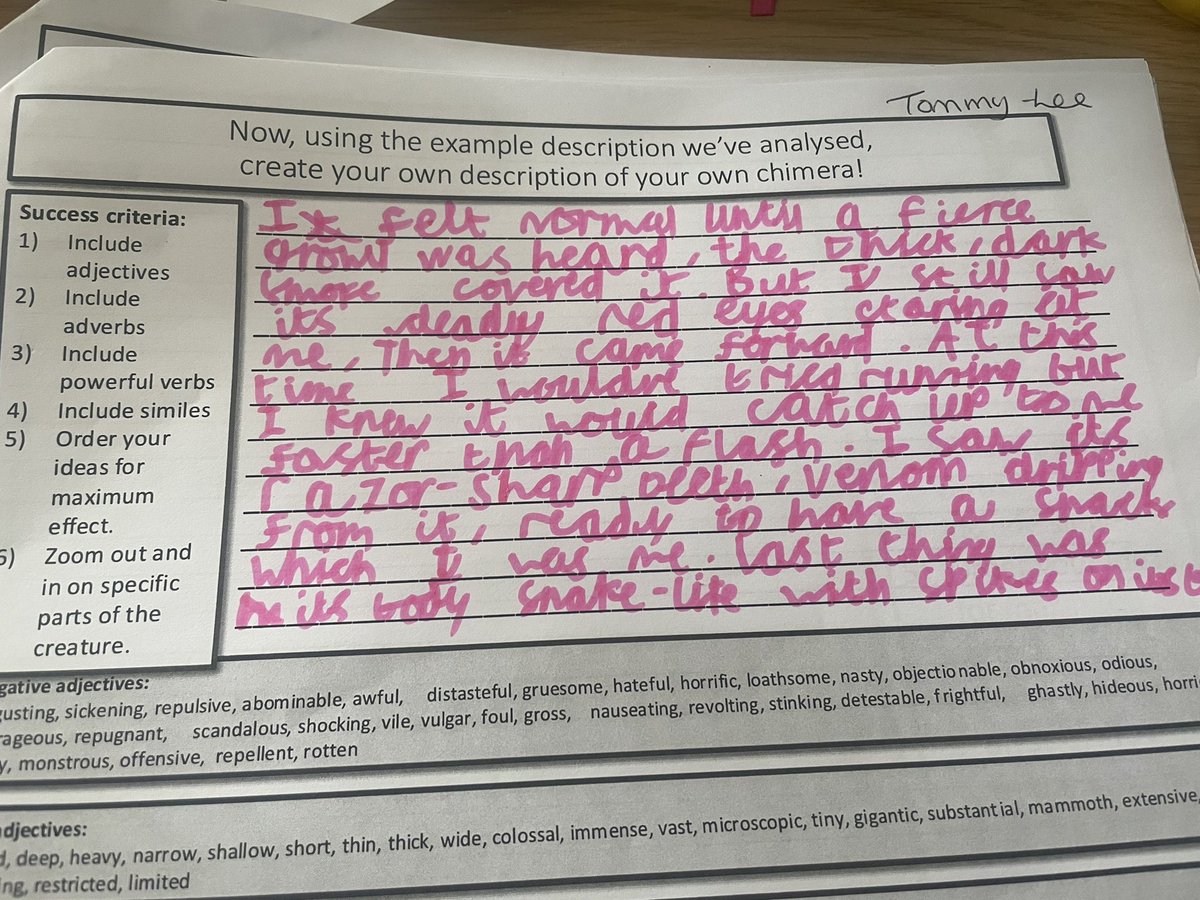 Tommy-Lee
Now, using the example description we've analysed,
create your own description of your own chimera!
Success criteria:
1) Include
adjectives
2) Include
adverbs
3) Include
powerful verbs
4) Include similes
5) Order your
ideas for
maximum
effect.
6) Zoom out and
in on specific
parts of the
creature.
I felt normal until a fierce
growl was heard, the thick, dark
smoke covered it. But I still saw
its deadly red eyes staring at
me, Then it came forward. At this
time I would've tried running but
I knew it would catch up to me
faster than a flash. I saw its
razor-sharp teeth, venom dripping
from it, ready to have a snack
which was me. Last thing was
its body snake-like with spikes on its
gative adjectives:
gusting, sickening, repulsive, abominable, awful, distasteful, gruesome, hateful, horrific, loathsome, nasty, objectionable, obnoxious, odious,
rageous, repugnant, scandalous, shocking, vile, vulgar, foul, gross, nauseating, revolting, stinking, detestable, frightful, ghastly, hideous, horri
y, monstrous, offensive, repellent, rotten
adjectives:
d, deep, heavy, narrow, shallow, short, thin, thick, wide, colossal, immense, vast, microscopic, tiny, gigantic, substantial, mammoth, extensive,
ing, restricted, limited